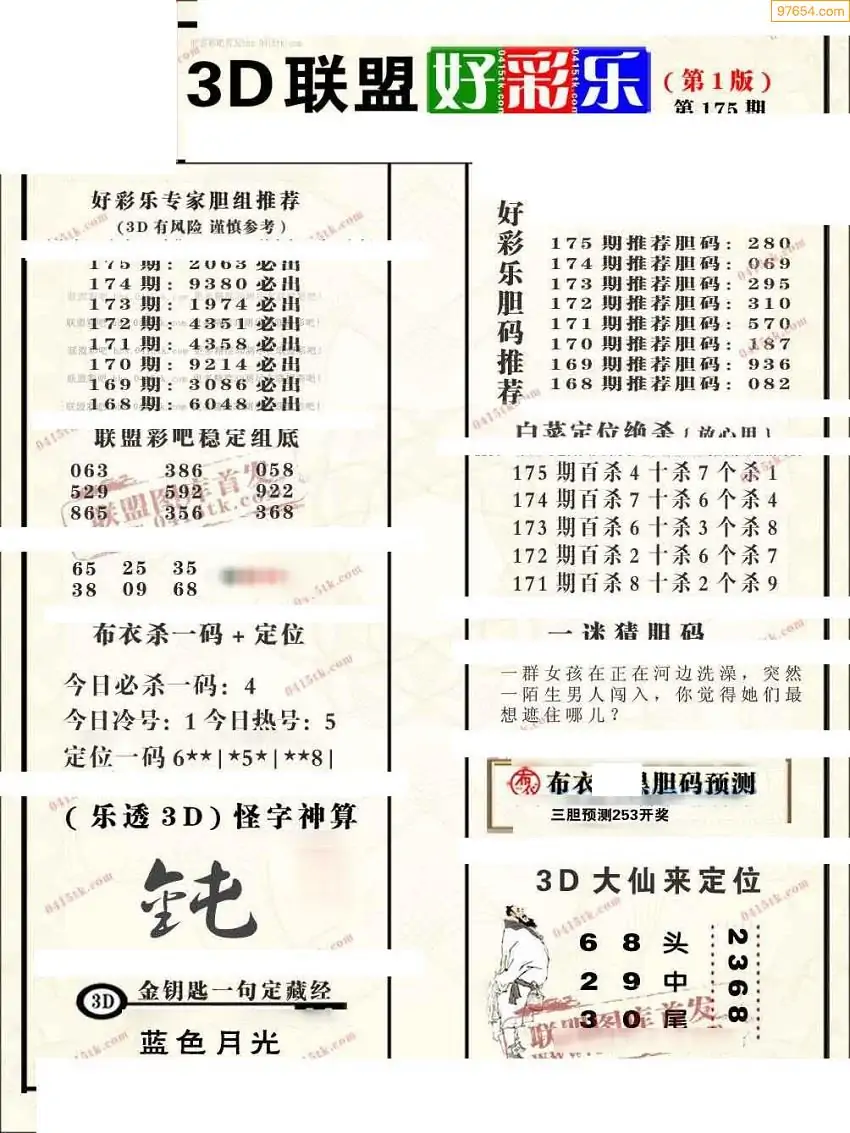 97654.com
3D联盟好彩乐
(第1版)
第175期
好彩乐专家胆组推荐
(3D有风险 谨慎参考)
175期: 2063必出
174期: 9380必出
173期: 1974必出
172期: 4351必出
171期: 4358必出
170期: 9214必出
169期: 3086必出
168期: 6048必出
联盟彩吧稳定组底
063 386 058
529 592 922
865 356 368
65 25 35
38 09 68
布衣杀一码+定位
今日必杀一码: 4
今日冷号: 1 今日热号: 5
定位一码 6**|*5*|**8|
(乐透3D)怪字神算
钝
3D 金钥匙一句定藏经
蓝色月光
好彩乐胆码推荐
175期推荐胆码: 280
174期推荐胆码: 069
173期推荐胆码: 295
172期推荐胆码: 310
171期推荐胆码: 570
170期推荐胆码: 187
169期推荐胆码: 936
168期推荐胆码: 082
白菜定位绝杀(放心用)
175期百杀4十杀7个杀1
174期百杀7十杀6个杀4
173期百杀6十杀3个杀8
172期百杀2十杀6个杀7
171期百杀8十杀2个杀9
一迷猜胆码
一群女孩在正在河边洗澡，突然
一陌生男人闯入，你觉得她们最
想遮住哪儿？
布衣 胆码预测
三胆预测253开奖
3D大仙来定位
6 8 头
2 9 中
3 0 尾
2368
联盟图库首发
0415tk.com